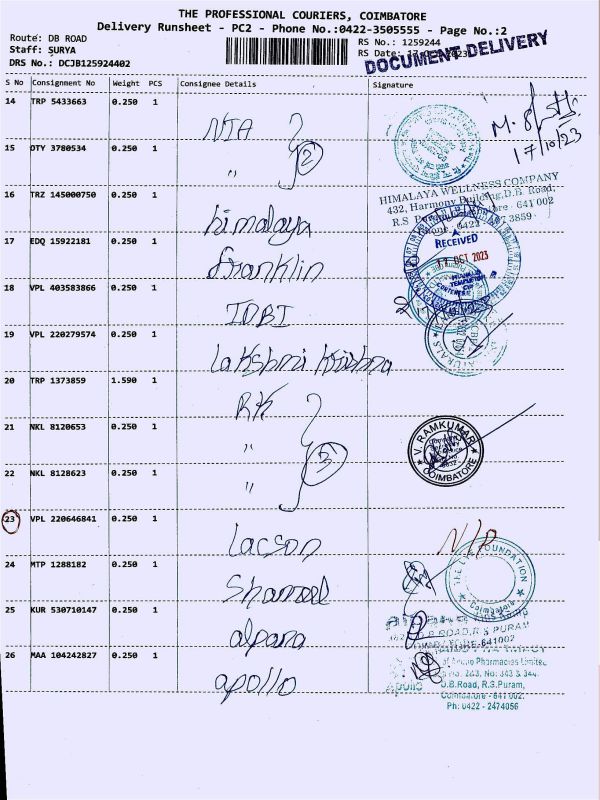 THE PROFESSIONAL COURIERS, COIMBATORE
Delivery Runsheet - PC2 - Phone No.:0422-3505555 - Page No.:2
Route: DB ROAD
RS No.: 1259244
Staff: SURYA
RS Date:
DOCUMENT DELIVERY
DRS No.: DCJB125924402
S No Consignment No Weight PCS Consignee Details Signature
14 TRP 5433663 0.250 1
NIA
M.
17/10/23
15 OTY 3780534 0.250 1
" 2
16 TRZ 145000750 0.250 1
himalaya
HIMALAYA WELLNESS COMPANY
432, Harmony Building, D.B. Road,
R.S. 641 002
17 EDQ 15922181 0.250 1
franklin
RECEIVED
OCT 2023
18 VPL 403583866 0.250 1
IDBI
19 VPL 220279574 0.250 1
lakshmi krishna
20 TRP 1373859 1.590 1
RK
21 NKL 8120653 0.250 1
"
3
V. RAMKUMAR
COIMBATORE
22 NKL 8128623 0.250 1
"
23 VPL 220646841 0.250 1
Lacson
24 MTP 1288182 0.250 1
THE EYE FOUNDATION
Coimbatore
25 KUR 530710147 0.250 1
alpana
D.B ROAD, R S PURAM
641002
26 MAA 104242827 0.250 1
apollo
of Apollo Pharmacies Limited
No: 343 & 344,
D.B.Road, R.S.Puram,
Coimbatore - 641 002.
Ph: 0422 - 2474056